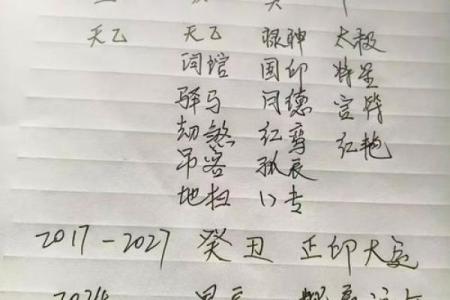 天乙 天乙 禄神 太极
词馆 国印 将星
驿马 月德 宫
劫煞 红鸾 红艳
吊客 孤辰
地扫 八专
2017-2027 癸丑 正印大运
2024 甲辰